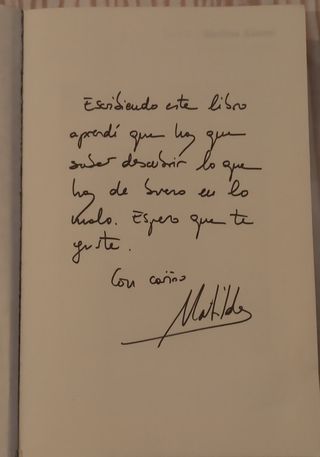 Escribiendo este libro
aprendí que hay que
saber descubrir lo que
hay de bueno en lo
malo. Espero que te
guste.
Con cariño
Matilde